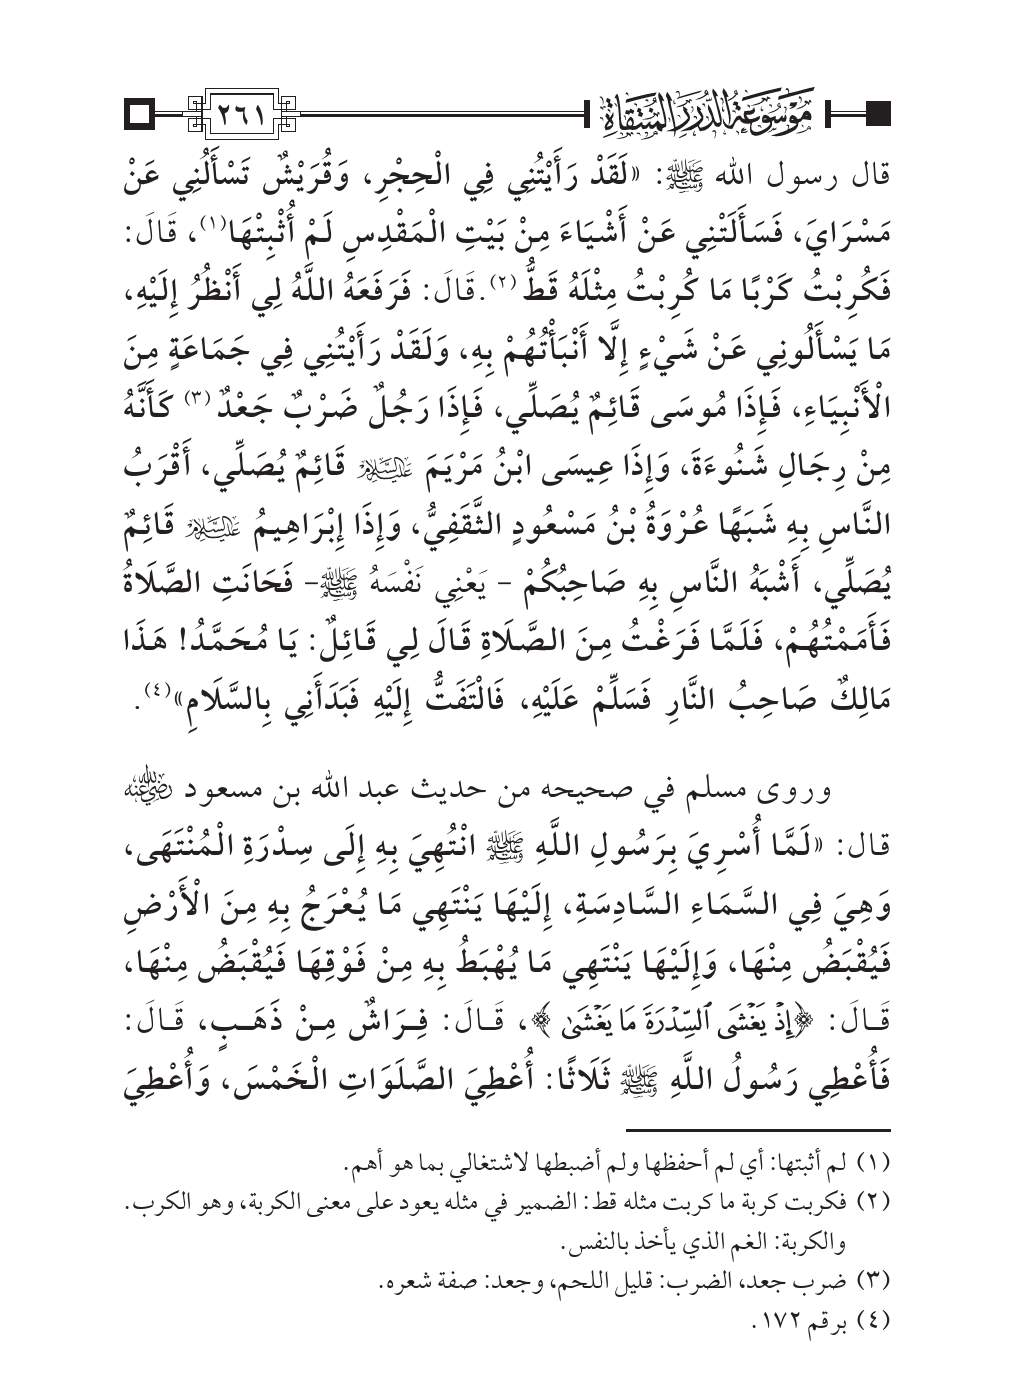 موسوعة الدرر المنتقاة
٢٦١
قال رسول الله ﷺ: «لَقَدْ رَأَيْتُنِي فِي الْحِجْرِ، وَقُرَيْشٌ تَسْأَلُنِي عَنْ
مَسْرَايَ، فَسَأَلَتْنِي عَنْ أَشْيَاءَ مِنْ بَيْتِ الْمَقْدِسِ لَمْ أُثْبِتْهَا(١)، قَالَ:
فَكُرِبْتُ كَرْبًا مَا كُرِبْتُ مِثْلَهُ قَطُّ (٢).قَالَ: فَرَفَعَهُ اللَّهُ لِي أَنْظُرُ إِلَيْهِ،
مَا يَسْأَلُونِي عَنْ شَيْءٍ إِلَّا أَنْبَأْتُهُمْ بِهِ، وَلَقَدْ رَأَيْتُنِي فِي جَمَاعَةٍ مِنَ
الْأَنْبِيَاءِ، فَإِذَا مُوسَى قَائِمٌ يُصَلِّي، فَإِذَا رَجُلٌ ضَرْبٌ جَعْدٌ (٣) كَأَنَّهُ
مِنْ رِجَالِ شَنُوءَةَ، وَإِذَا عِيسَى ابْنُ مَرْيَمَ عليه السلام قَائِمٌ يُصَلِّي، أَقْرَبُ
النَّاسِ بِهِ شَبَهًا عُرْوَةُ بْنُ مَسْعُودٍ الثَّقَفِيُّ، وَإِذَا إِبْرَاهِيمُ عليه السلام قَائِمٌ
يُصَلِّي، أَشْبَهُ النَّاسِ بِهِ صَاحِبُكُمْ – يَعْنِي نَفْسَهُ ﷺ– فَحَانَتِ الصَّلَاةُ
فَأَمَمْتُهُمْ، فَلَمَّا فَرَغْتُ مِنَ الصَّلَاةِ قَالَ لِي قَائِلٌ: يَا مُحَمَّدُ! هَذَا
مَالِكٌ صَاحِبُ النَّارِ فَسَلِّمْ عَلَيْهِ، فَالْتَفَتُّ إِلَيْهِ فَبَدَأَنِي بِالسَّلَامِ»(٤).
وروى مسلم في صحيحه من حديث عبد الله بن مسعود رضي الله عنه
قال: «لَمَّا أُسْرِيَ بِرَسُولِ اللَّهِ ﷺ انْتُهِيَ بِهِ إِلَى سِدْرَةِ الْمُنْتَهَى،
وَهِيَ فِي السَّمَاءِ السَّادِسَةِ، إِلَيْهَا يَنْتَهِي مَا يُعْرَجُ بِهِ مِنَ الْأَرْضِ
فَيُقْبَضُ مِنْهَا، وَإِلَيْهَا يَنْتَهِي مَا يُهْبَطُ بِهِ مِنْ فَوْقِهَا فَيُقْبَضُ مِنْهَا،
قَالَ: ﴿إِذْ يَغْشَى ٱلسِّدْرَةَ مَا يَغْشَىٰ ﴾، قَالَ: فِرَاشٌ مِنْ ذَهَبٍ، قَالَ:
فَأُعْطِي رَسُولُ اللَّهِ ﷺ ثَلَاثًا: أُعْطِيَ الصَّلَوَاتِ الْخَمْسَ، وَأُعْطِيَ
(١) لم أثبتها: أي لم أحفظها ولم أضبطها لاشتغالي بما هو أهم.
(٢) فكربت كربة ما كربت مثله قط: الضمير في مثله يعود على معنى الكربة، وهو الكرب.
والكربة: الغم الذي يأخذ بالنفس.
(٣) ضرب جعد، الضرب: قليل اللحم، وجعد: صفة شعره.
(٤) برقم ١٧٢.